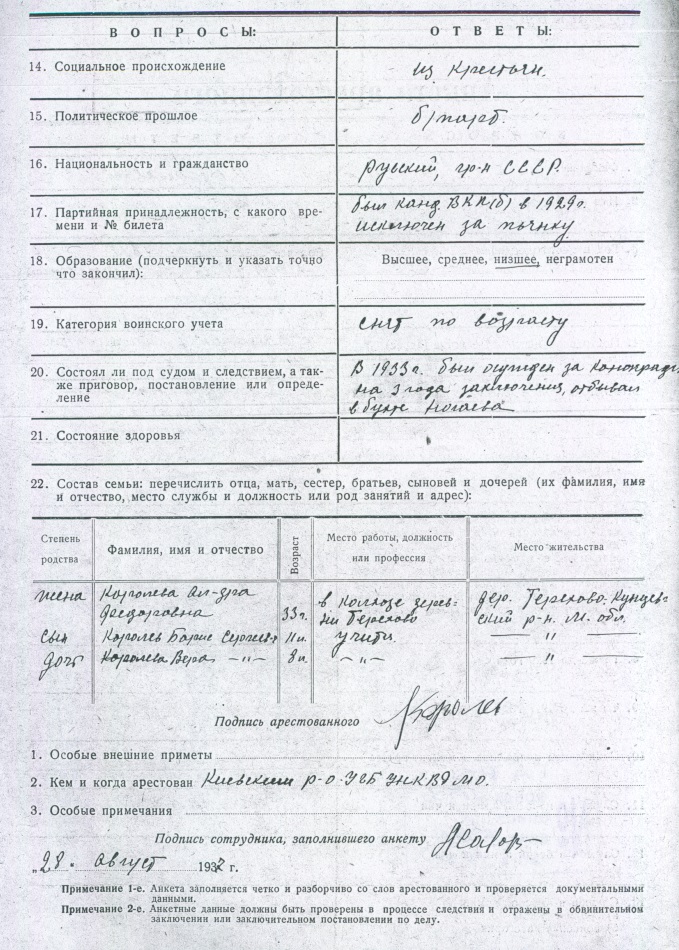 ВОПРОСЫ: ОТВЕТЫ:
14. Социальное происхождение из крестьян.
15. Политическое прошлое б/парт.
16. Национальность и гражданство русский, гр-н СССР.
17. Партийная принадлежность, с какого вре- был канд. ВКП(б) в 1929г.
мени и № билета исключен за пьянку
18. Образование (подчеркнуть и указать точно Высшее, среднее, низшее, неграмотен
что закончил):
19. Категория воинского учета снят по возрасту
20. Состоял ли под судом и следствием, а так- В 1933г. был осужден за
же приговор, постановление или опреде- на 3 года заключения, отбывал
ление в бухте Ногаева
21. Состояние здоровья
22. Состав семьи: перечислить отца, мать, сестер, братьев, сыновей и дочерей (их фамилия, имя
и отчество, место службы и должность или род занятий и адрес):
Степень родства
Фамилия, имя и отчество
Возраст
Место работы, должность или профессия
Место жительства
жена Королева Ал-дра в колхозе дерев- дер. Терехово Кунцев-
Федоровна 33г. ни Терехово ский р-н. М. обл.
сын Королев Борис Сергеев. 11л. учитс. — " —
дочь Королева Вера —"— 8л. —"— — " —
Подпись арестованного Королев
1. Особые внешние приметы
2. Кем и когда арестован Киевским р-о УГБ УНКВД МО.
3. Особые примечания
Подпись сотрудника, заполнившего анкету
„28" август 1937 г.
Примечание 1-е. Анкета заполняется четко и разборчиво со слов арестованного и проверяется документальными
данными.
Примечание 2-е. Анкетные данные должны быть проверены в процессе следствия и отражены в обвинительном
заключении или заключительном постановлении по делу.